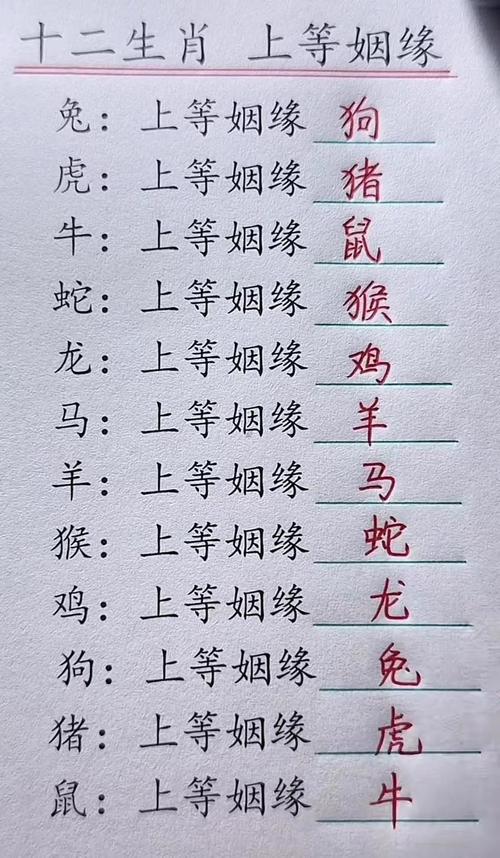 十二生肖 上等姻缘
兔：上等姻缘 狗
虎：上等姻缘 猪
牛：上等姻缘 鼠
蛇：上等姻缘 猴
龙：上等姻缘 鸡
马：上等姻缘 羊
羊：上等姻缘 马
猴：上等姻缘 蛇
鸡：上等姻缘 龙
狗：上等姻缘 兔
猪：上等姻缘 虎
鼠：上等姻缘 牛